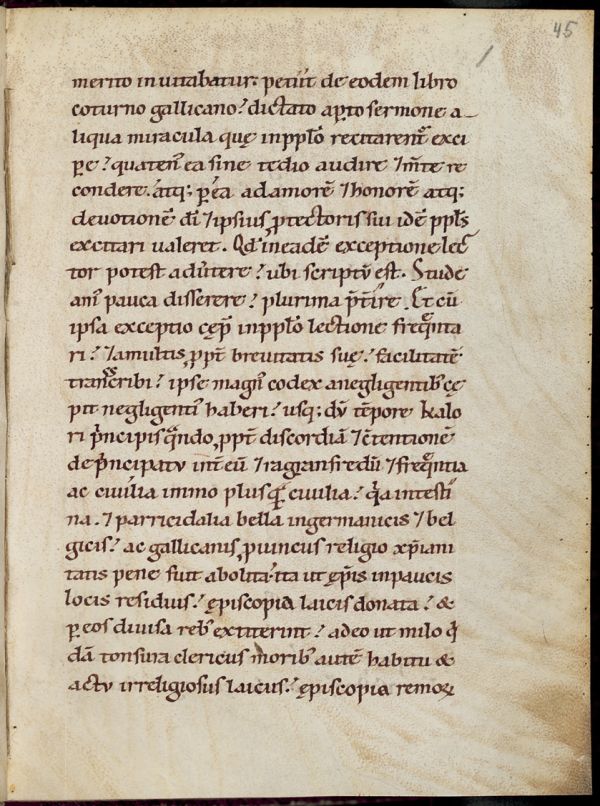 45
merito inuitabatur; petiit de eodem libro
coturno gallicano? dictato apto sermone a-
liqua miracula quę inpplo recitarent exci
pe? quaten ea sine tedio audire ⁊ mte re
condere. atq; p ea ad amorē ⁊ honorē atq;
deuotionē dī ⁊ ipsius ptectoris sui idē ppls
excitari ualeret. Qd ineadē exceptione lec
tor potest aduertere? ubi scriptū est. Stude
am pauca disserere? plurima p̄tire. Et cū
ipsa exceptio cęp inpplo lectione freqnta
ri? ⁊ amultis ppt breuitatis suę? facilitatē
transcribi? ipse magn codex anegligentib cę
pit negligenti haberi? usq; dū tēpore karo
ri pncipis qndo ppt discordiā ⁊ ctentionē
de pncipatu int eū ⁊ raganfredū ⁊ freqntia
ac ciuilia immo plus q ciuilia? qa intesti
na. ⁊ parricidalia bella ingermanicis ⁊ bel
gicis? ac gallicanis puinciis religio xpiani
tatis pene fuit abolita. ita ut ępis inpaucis
locis residuis? ępiscopia laicis donata? &
p eos diuisa reb extiterint? adeo ut milo q
dā tonsura clericus morib autē habitu &
actu irreligiosus laicus? ępiscopia remor